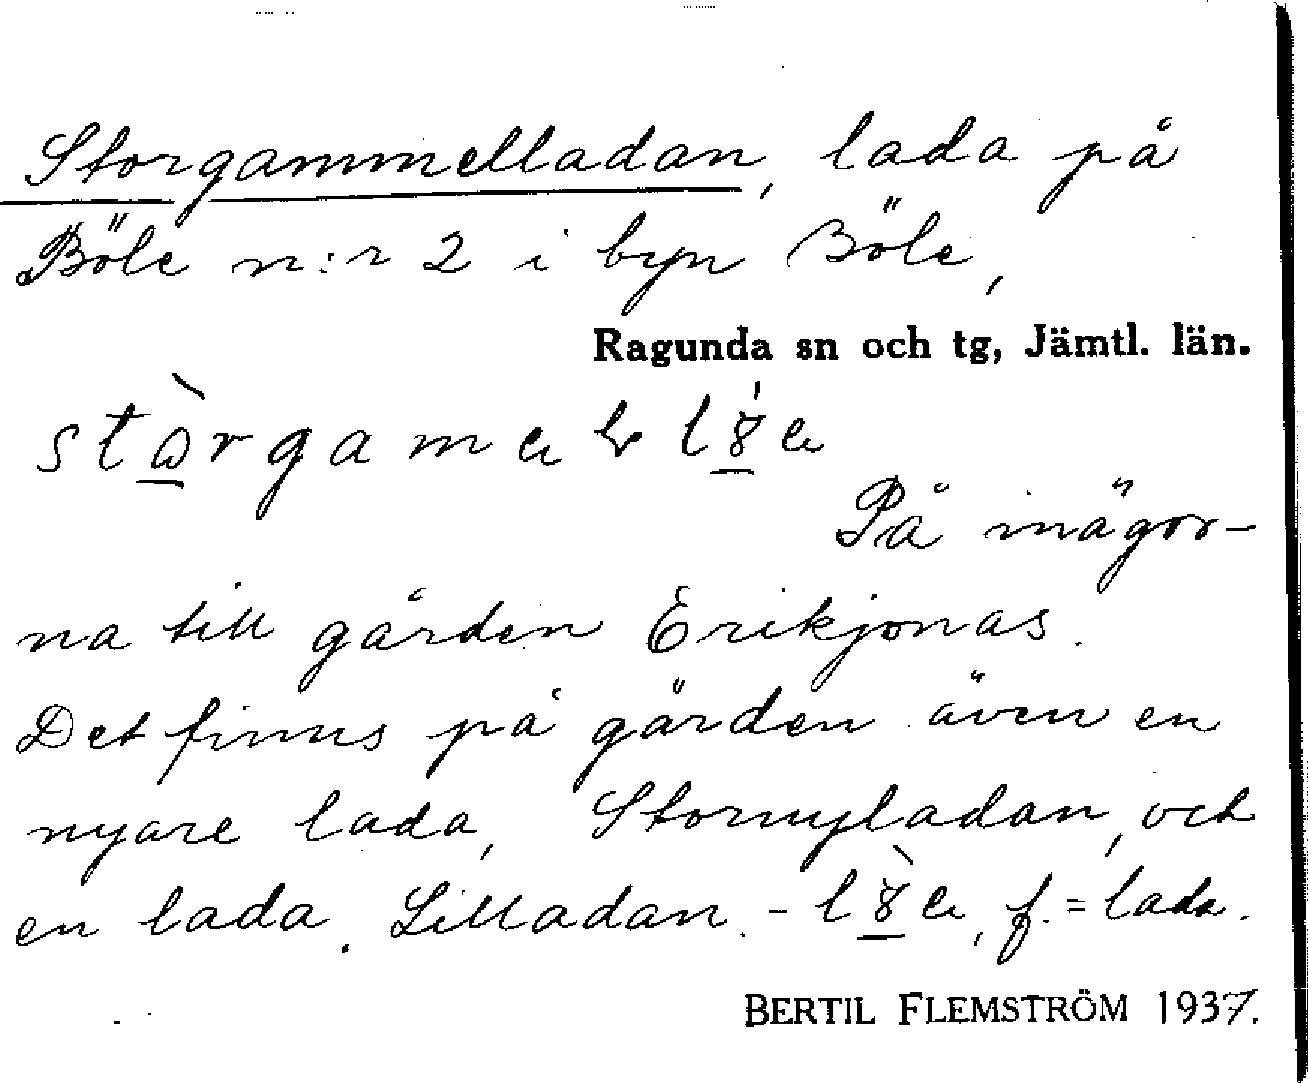 Storgammelladan, lada på
Böle n:r 2 i byn Böle,
Ragunda sn och tg, Jämtl. län.
På inägor-
na till gården Erikjonas.
Det finns på gården även en
nyare lada, Stornyladan, och
en lada Lilladan. - f. = lada.
BERTIL FLEMSTRÖM 1937.